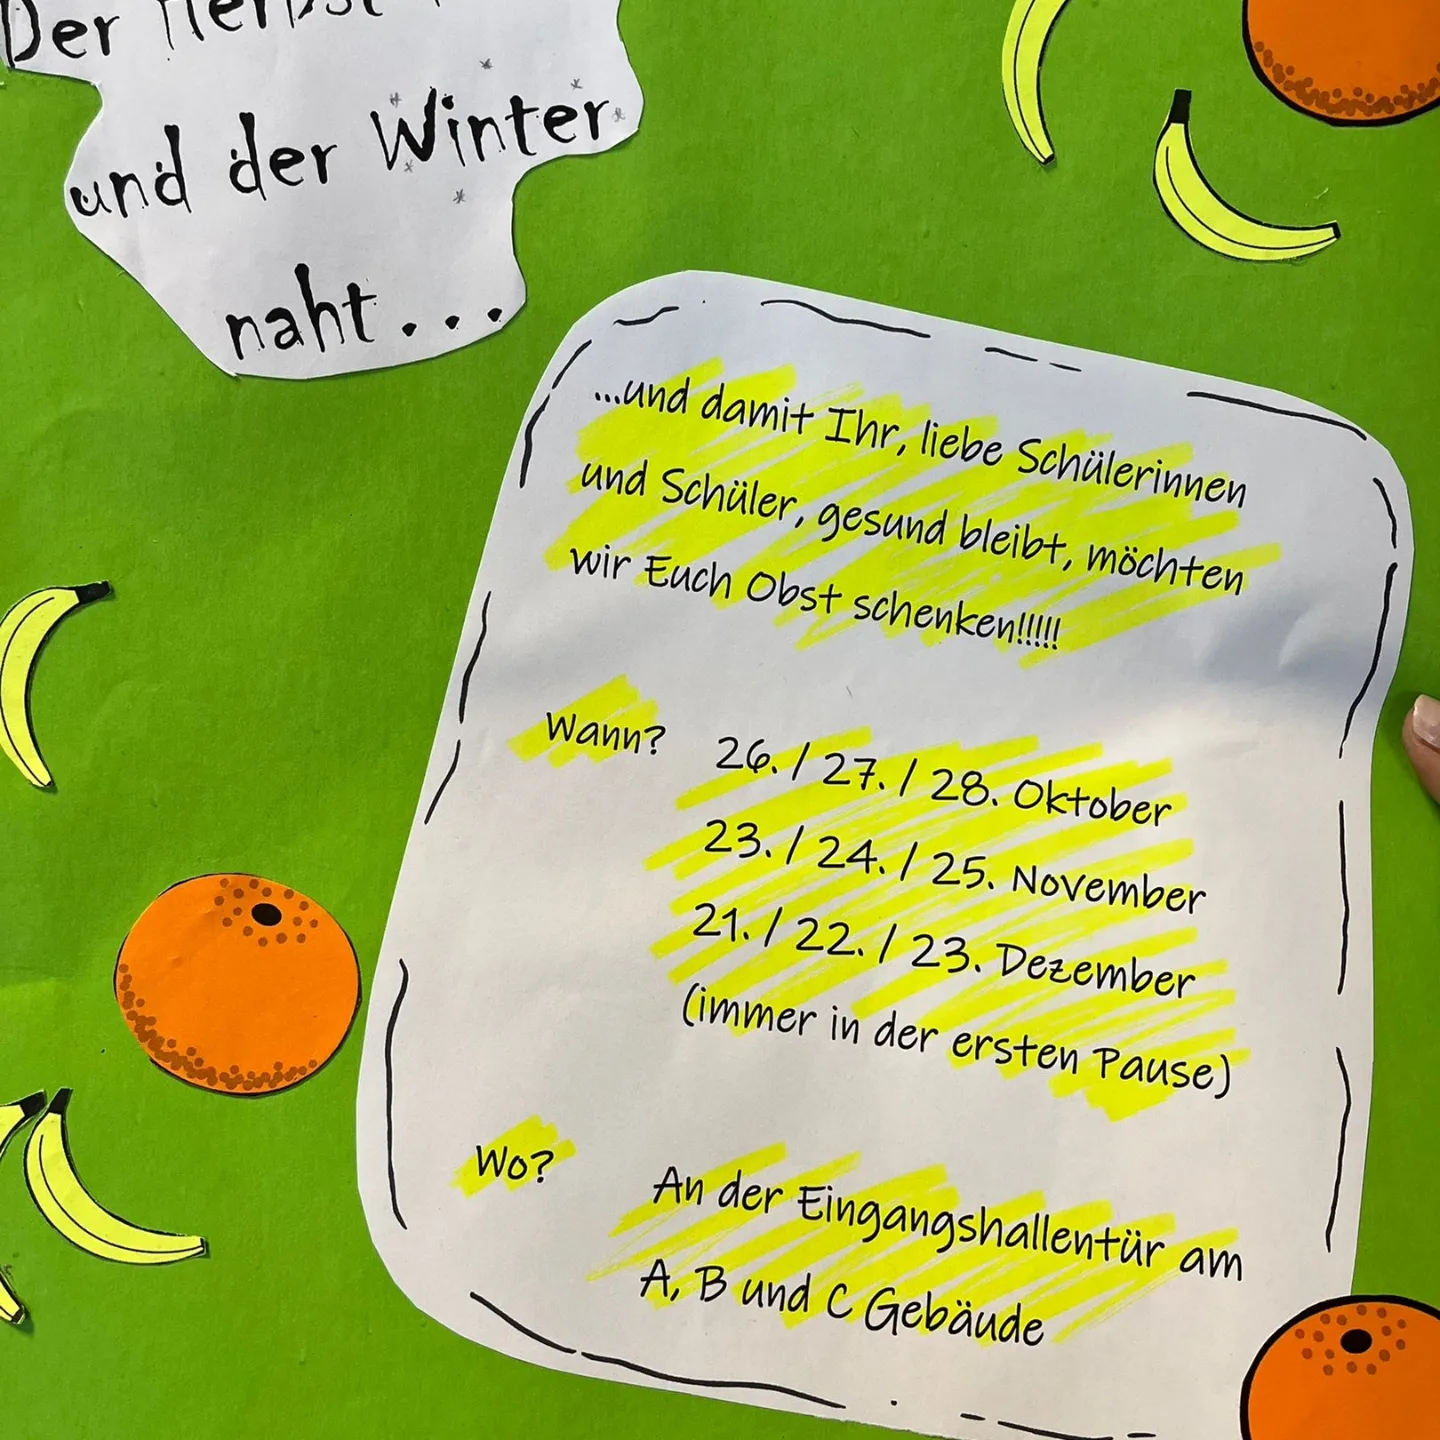 Der Herbst
und der Winter
naht...
...und damit Ihr, liebe Schülerinnen
und Schüler, gesund bleibt, möchten
wir Euch Obst schenken!!!!!
Wann? 26. / 27. / 28. Oktober
23. / 24. / 25. November
21. / 22. / 23. Dezember
(immer in der ersten Pause)
Wo? An der Eingangshallentür am
A, B und C Gebäude